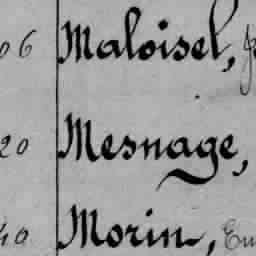 06 Maloisel,
20 Mesnage,
40 Morin, Eu